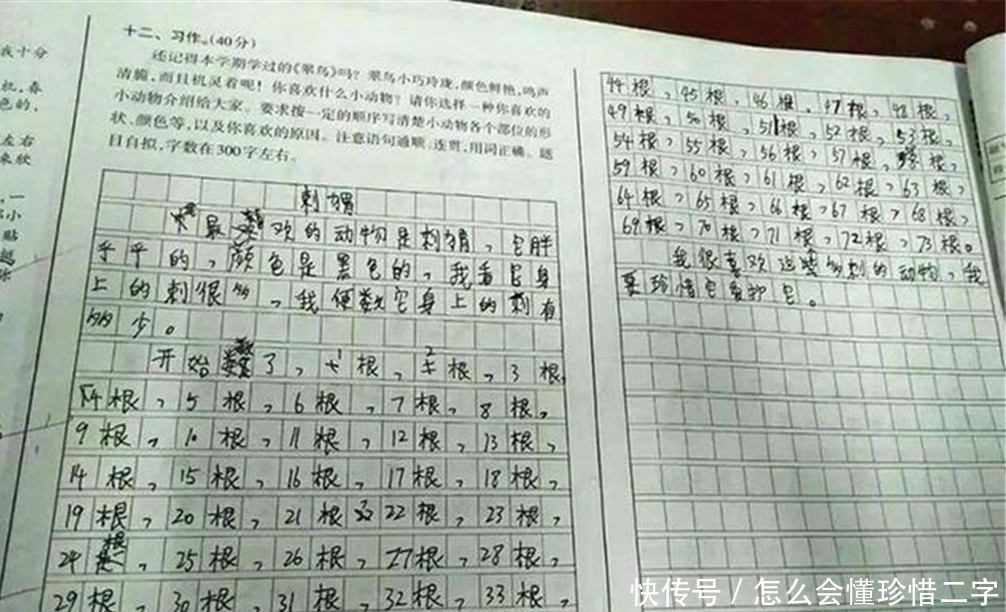 十二、习作。(40分)
还记得本学期学过的《翠鸟》吗？翠鸟小巧玲珑,颜色鲜艳,鸣声
清脆,而且机灵着呢！你喜欢什么小动物？请你选择一种你喜欢的
小动物介绍给大家。要求按一定的顺序写清楚小动物各个部位的形
状、颜色等,以及你喜欢的原因。注意语句通顺、连贯,用词正确。题
目自拟,字数在300字左右。
刺猬
最喜欢的动物是刺猬，它胖
乎乎的，颜色是黑色的，我看它身
上的刺很多，我便数它身上的刺有
多少。
开始数了，1根，2根，3根，
4根，5根，6根，7根，8根，
9根，10根，11根，12根，13根，
14根，15根，16根，17根，18根，
19根，20根，21根，22根，23根，
24根，25根，26根，27根，28根，
29根，30根，31根，32根，33根，
44根，45根，46根，47根，48根，
49根，50根，51根，52根，53根，
54根，55根，56根，57根，根，
59根，60根，61根，62根，63根，
64根，65根，66根，67根，68根，
69根，70根，71根，72根，73根。
我很喜欢这些多刺的动物，我
要珍惜它爱护它。
我十分
机,春
色的,
左右
来欣
快传号 / 怎么会懂珍惜二字